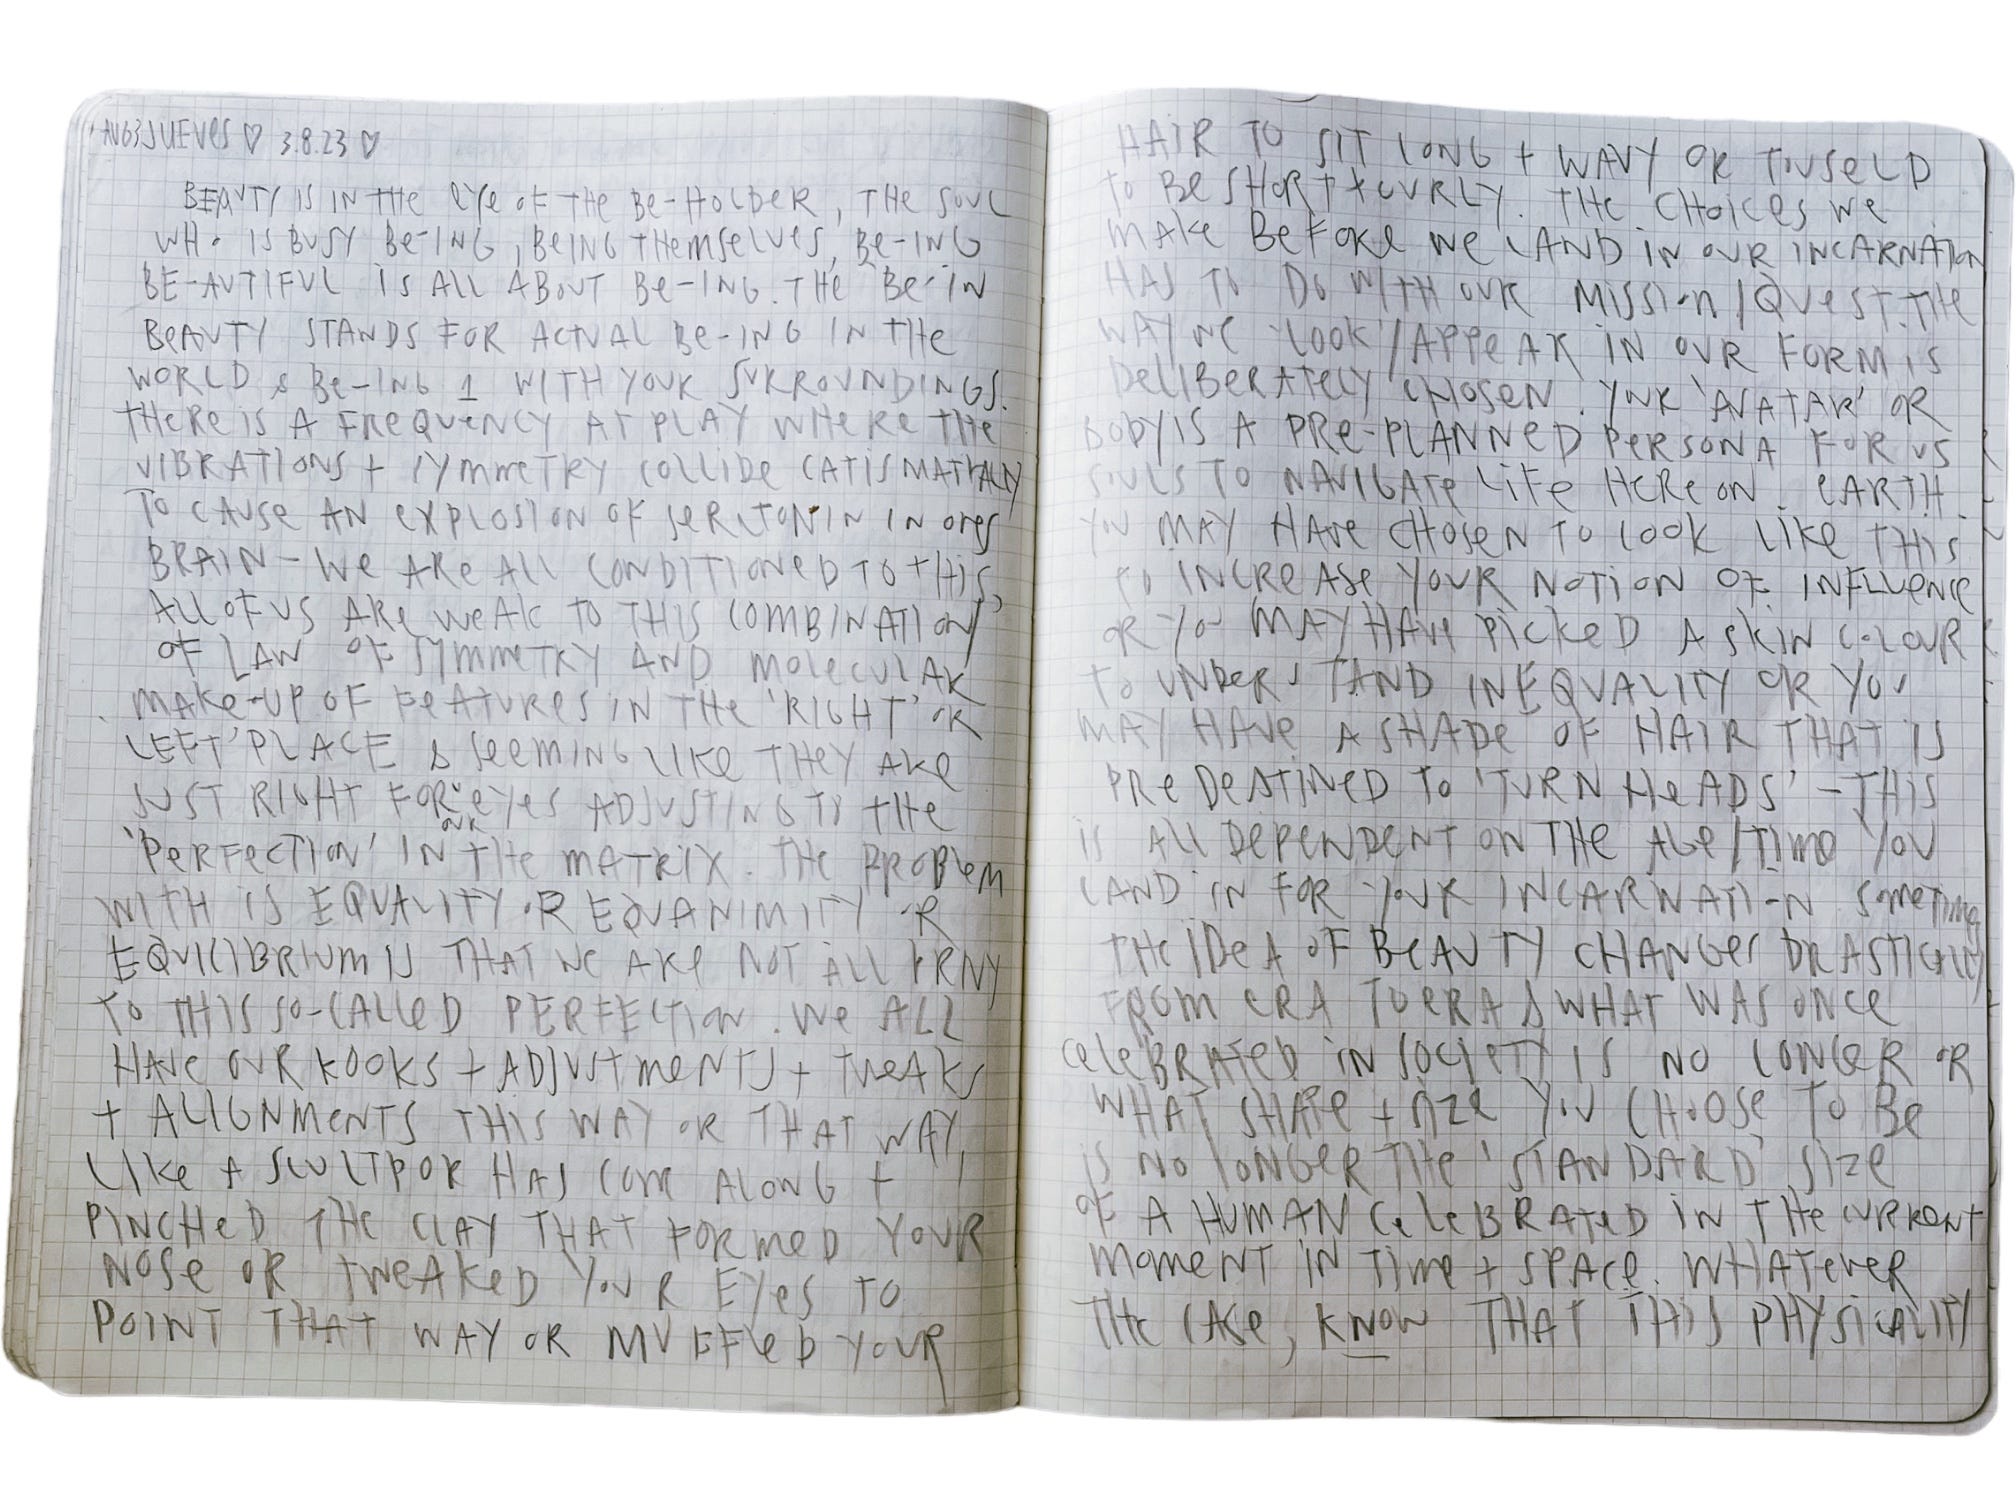 AUG 3 JUEVES ♡ 3.8.23 ♡
BEAUTY IS IN THE EYE OF THE BE-HOLDER, THE SOUL
WHO IS BUSY BE-ING, BEING THEMSELVES, BE-ING
BE-AUTIFUL IS ALL ABOUT BE-ING. THE 'BE' IN
BEAUTY STANDS FOR ACTUAL BE-ING IN THE
WORLD & BE-ING 1 WITH YOUR SURROUNDINGS.
THERE IS A FREQUENCY AT PLAY WHERE THE
VIBRATIONS + SYMMETRY COLLIDE
TO CAUSE AN EXPLOSION OF SERETONIN IN ONES
BRAIN - WE ARE ALL CONDITIONED TO THIS,
ALL OF US ARE WEAK TO THIS COMBINATION
OF LAW OF SYMMETRY AND MOLECULAR
MAKE-UP OF FEATURES IN THE 'RIGHT' OR
LEFT' PLACE & SEEMING LIKE THEY ARE
JUST RIGHT FOR OUR EYES ADJUSTING TO THE
'PERFECTION' IN THE MATRIX. THE PROBLEM
WITH IS EQUALITY OR EQUANIMITY OR
EQUILIBRIUM IS THAT WE ARE NOT ALL
TO THIS SO-CALLED PERFECTION. WE ALL
HAVE OUR KOOKS + ADJUSTMENTS + TWEAKS
+ ALIGNMENTS THIS WAY OR THAT WAY,
LIKE A SCULTPOR HAS COME ALONG +
PINCHED THE CLAY THAT FORMED YOUR
NOSE OR TWEAKED YOUR EYES TO
POINT THAT WAY OR MUFFLED YOUR
HAIR TO SIT LONG + WAVY OR TOUSELD
TO BE SHORT + CURLY. THE CHOICES WE
MAKE BEFORE WE LAND IN OUR INCARNATION
HAS TO DO WITH OUR MISSION/QUEST. THE
WAY WE 'LOOK'/APPEAR IN OUR FORM IS
DELIBERATELY CHOSEN. YOUR 'AVATAR' OR
BODY IS A PRE-PLANNED PERSONA FOR US
SOULS TO NAVIGATE LIFE HERE ON EARTH.
YOU MAY HAVE CHOSEN TO LOOK LIKE THIS
TO INCREASE YOUR NOTION OF INFLUENCE
OR YOU MAY HAVE PICKED A SKIN COLOUR
TO UNDERSTAND INEQUALITY OR YOU
MAY HAVE A SHADE OF HAIR THAT IS
PRE DESTINED TO 'TURN HEADS' - THIS
IS ALL DEPENDENT ON THE AGE/TIME YOU
LAND IN FOR YOUR INCARNATION SOMETIMES
THE IDEA OF BEAUTY CHANGES DRASTICALLY
FROM ERA TO ERA & WHAT WAS ONCE
CELEBRATED IN SOCIETY IS NO LONGER OR
WHAT SHAPE + SIZE YOU CHOOSE TO BE
IS NO LONGER THE 'STANDARD' SIZE
OF A HUMAN CELEBRATED IN THE CURRENT
MOMENT IN TIME + SPACE. WHATEVER
THE CASE, KNOW THAT THIS PHYSICALITY